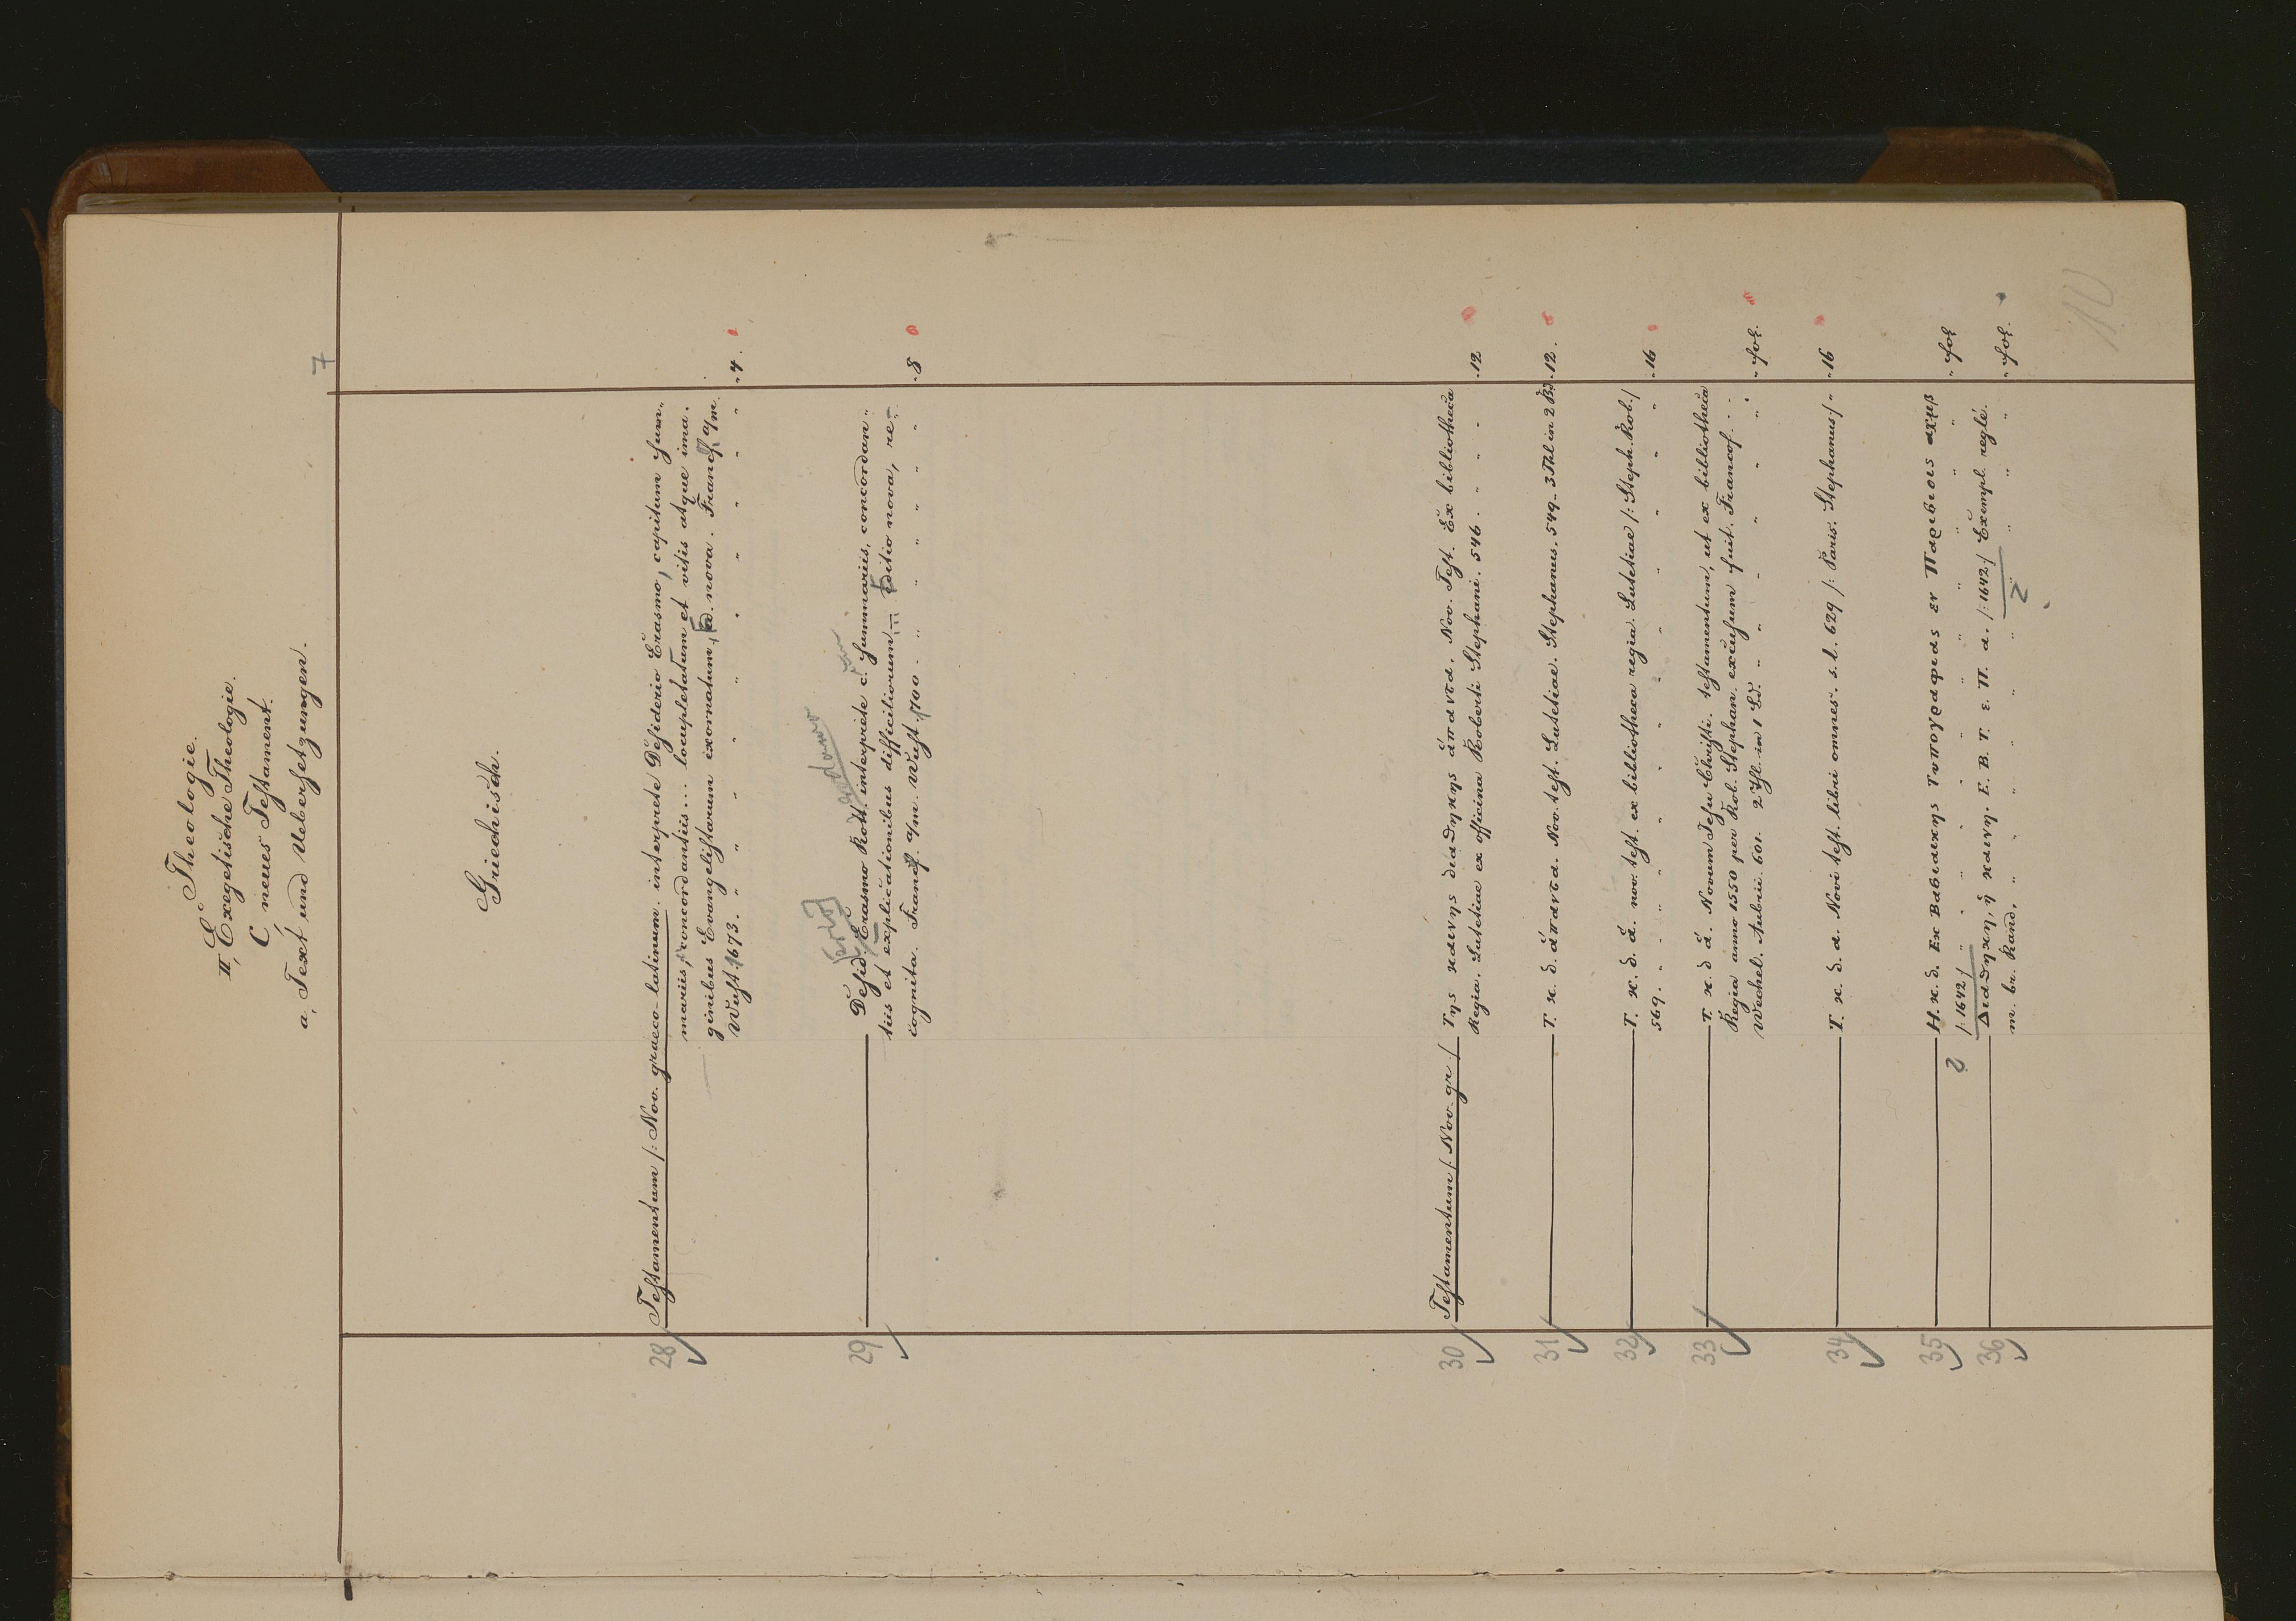 7
Theologie.
E
II, Exegetische Theologie.
C neues Testament.
a, Text und Uebersetzungen.
Griechisch.
28 Testamentum /: Nov. graeco-latinum. interprete Desiderio Erasmo, capitum sum„
mariis, concordantiis... locupletatum et vitis atque ima„
ginibus Evangelistarum exornatum, Ed. nova. Francf. a/m.
Wust. 1673. " " " " " " " " " 4.
29 Desid. Erasmo Rott. interprete c. summariis, concordan„
tiis et explicationibus difficiliorum ... Editio nova, re„
cognita. Francf. a/m. Wust. 1700. " " " " " " 8
30 Testamentum /. Nov. gr./ Της καινης διαθηκης ἁπαντα. Nov. Test. Ex bibliotheca
Regia. Lutetiae ex officina Roberti Stephani. 546. " " " 12
31 Τ. κ. δ. ἁπαντα. Nov. test. Lutetiae. Stephanus. 549. 3 Thl in 2 Bd. 12.
32 Τ. κ. δ. ἁ. nov. test. ex bibliotheca regia. Lutetiae /: Steph. Rob./
569. " " " " " " " " " " 16
33 Τ. κ. δ ἁ. Novum Jesu Christi. testamentum, ut ex bibliotheca
Regia anno 1550 per Rob. Stephan. excusum fuit. Francof. . .
Wechel. Aubrii. 601. 2 Thl. in 1 Bd. " " " " " fol.
34 Τ. κ. δ. α. Novi test. libri omnes. s. l. 629 /: Paris. Stephanus/ " 16
35 Η. κ. δ. Εκ Βασιλικης Τυπογραφιας εν Παρισιοις αχμβ
/: 1642./ " " " " " " " " " " fol
36 Διαθηκη, ἡ καινη. Ε. Β. Τ. ε. Π. α. /: 1642./ Exempl. reglé.
m. br. Rand, " " " " " " " " fol.
2
10